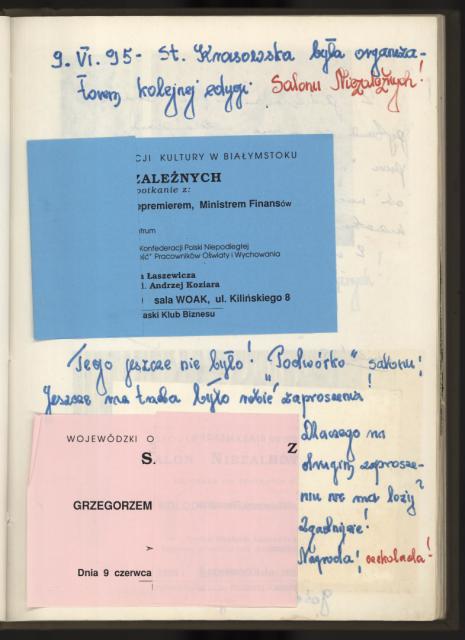 9. VI. 95 - St. Krasowska była organiza-
torem kolejnej edycji Salonu Niezależnych!
CJI KULTURY W BIAŁYMSTOKU
ZALEŻNYCH
potkanie z:
epremierem, Ministrem Finansów
ntrum
Konfederacji Polski Niepodległej
ść" Pracowników Oświaty i Wychowania
a Łaszewicza
l. Andrzej Koziara
sala WOAK, ul. Kilińskiego 8
laski Klub Biznesu
Tego jeszcze nie było! "Podwórko" salonu!
Jeszcze na trzeba było robić zaproszenia!
WOJEWÓDZKI O
S.
Z
GRZEGORZEM
Dnia 9 czerwca
Dlaczego na
drugim zaprosze-
niu nie ma loży?
Zgadnijcie!
Nagroda! czekolada!